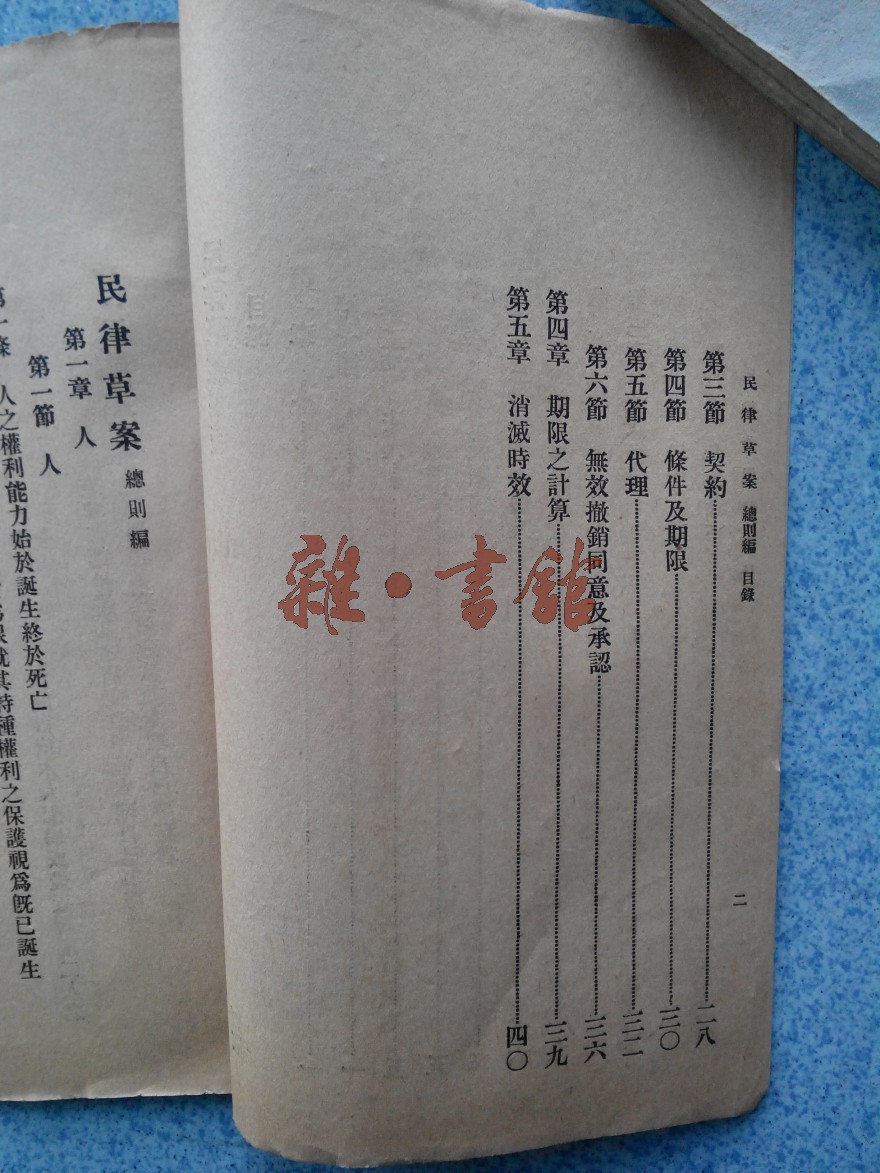 民律草案 總則編 目錄
二
第三節 契約 二八
第四節 條件及期限 三〇
第五節 代理 三二
第六節 無效撤銷同意及承認 三六
第四章 期限之計算 三九
第五章 消滅時效 四〇
雜·書館
民律草案 總則編
第一章 人
第一節 人
人之權利能力始於誕生終於死亡
就其特種權利之保護視爲既已誕生